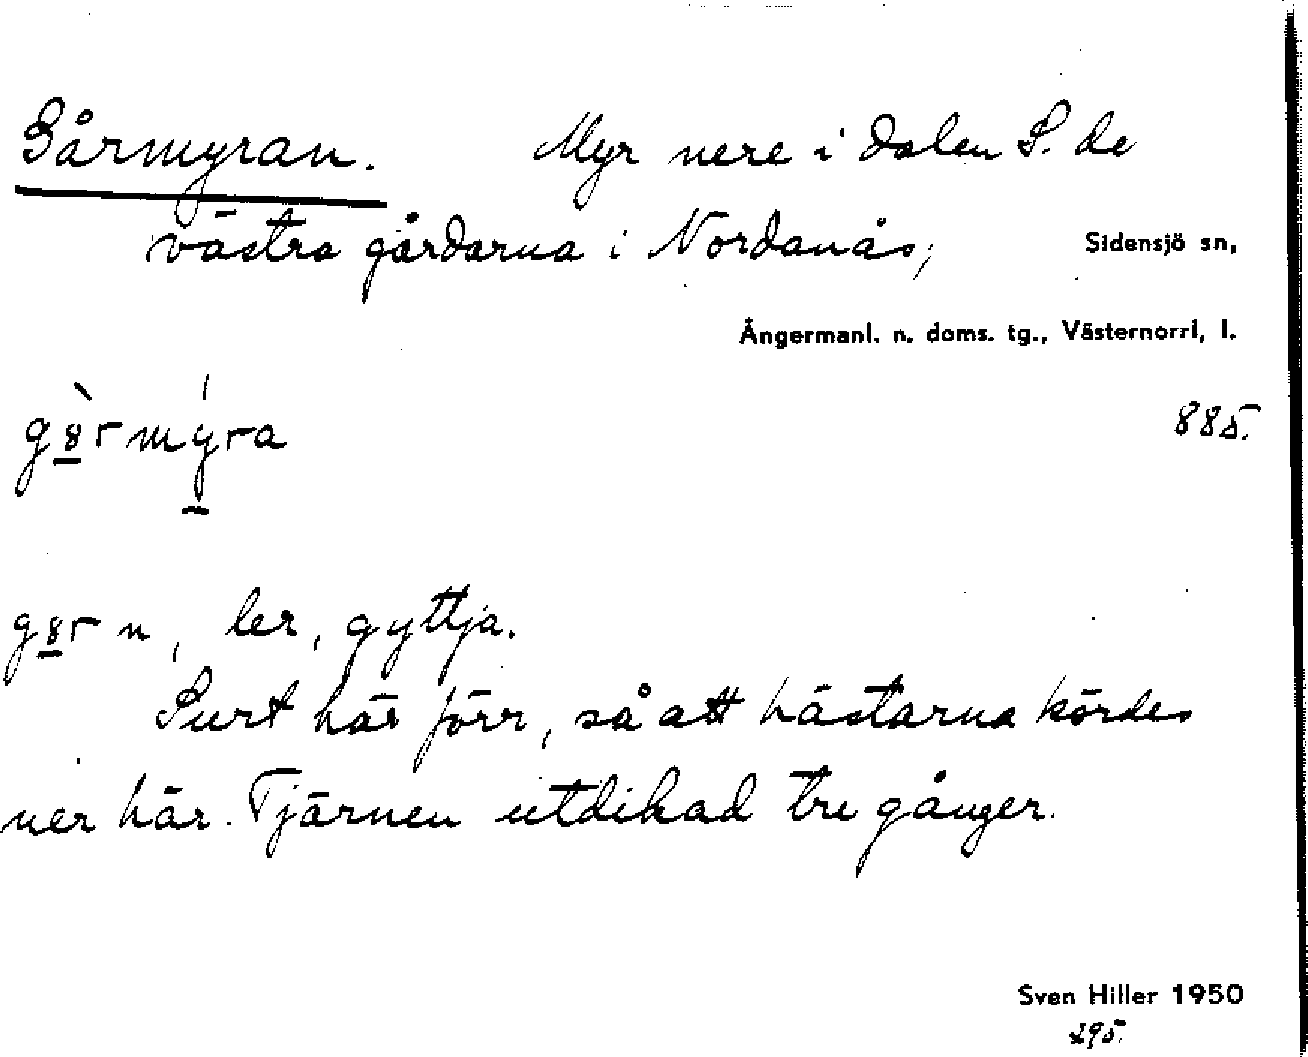 Gårmyran. Myr nere i dalen S. de
västra gårdarna i Nordanås, Sidensjö sn,
Ångermanl. n. doms. tg., Västernorrl, l.
885.
g8̀rmýra
g8r n, ler, gyttja.
Surt här förr, så att hästarna kördes
ner här. Tjärnen utdikad tre gånger.
Sven Hiller 1950
295.